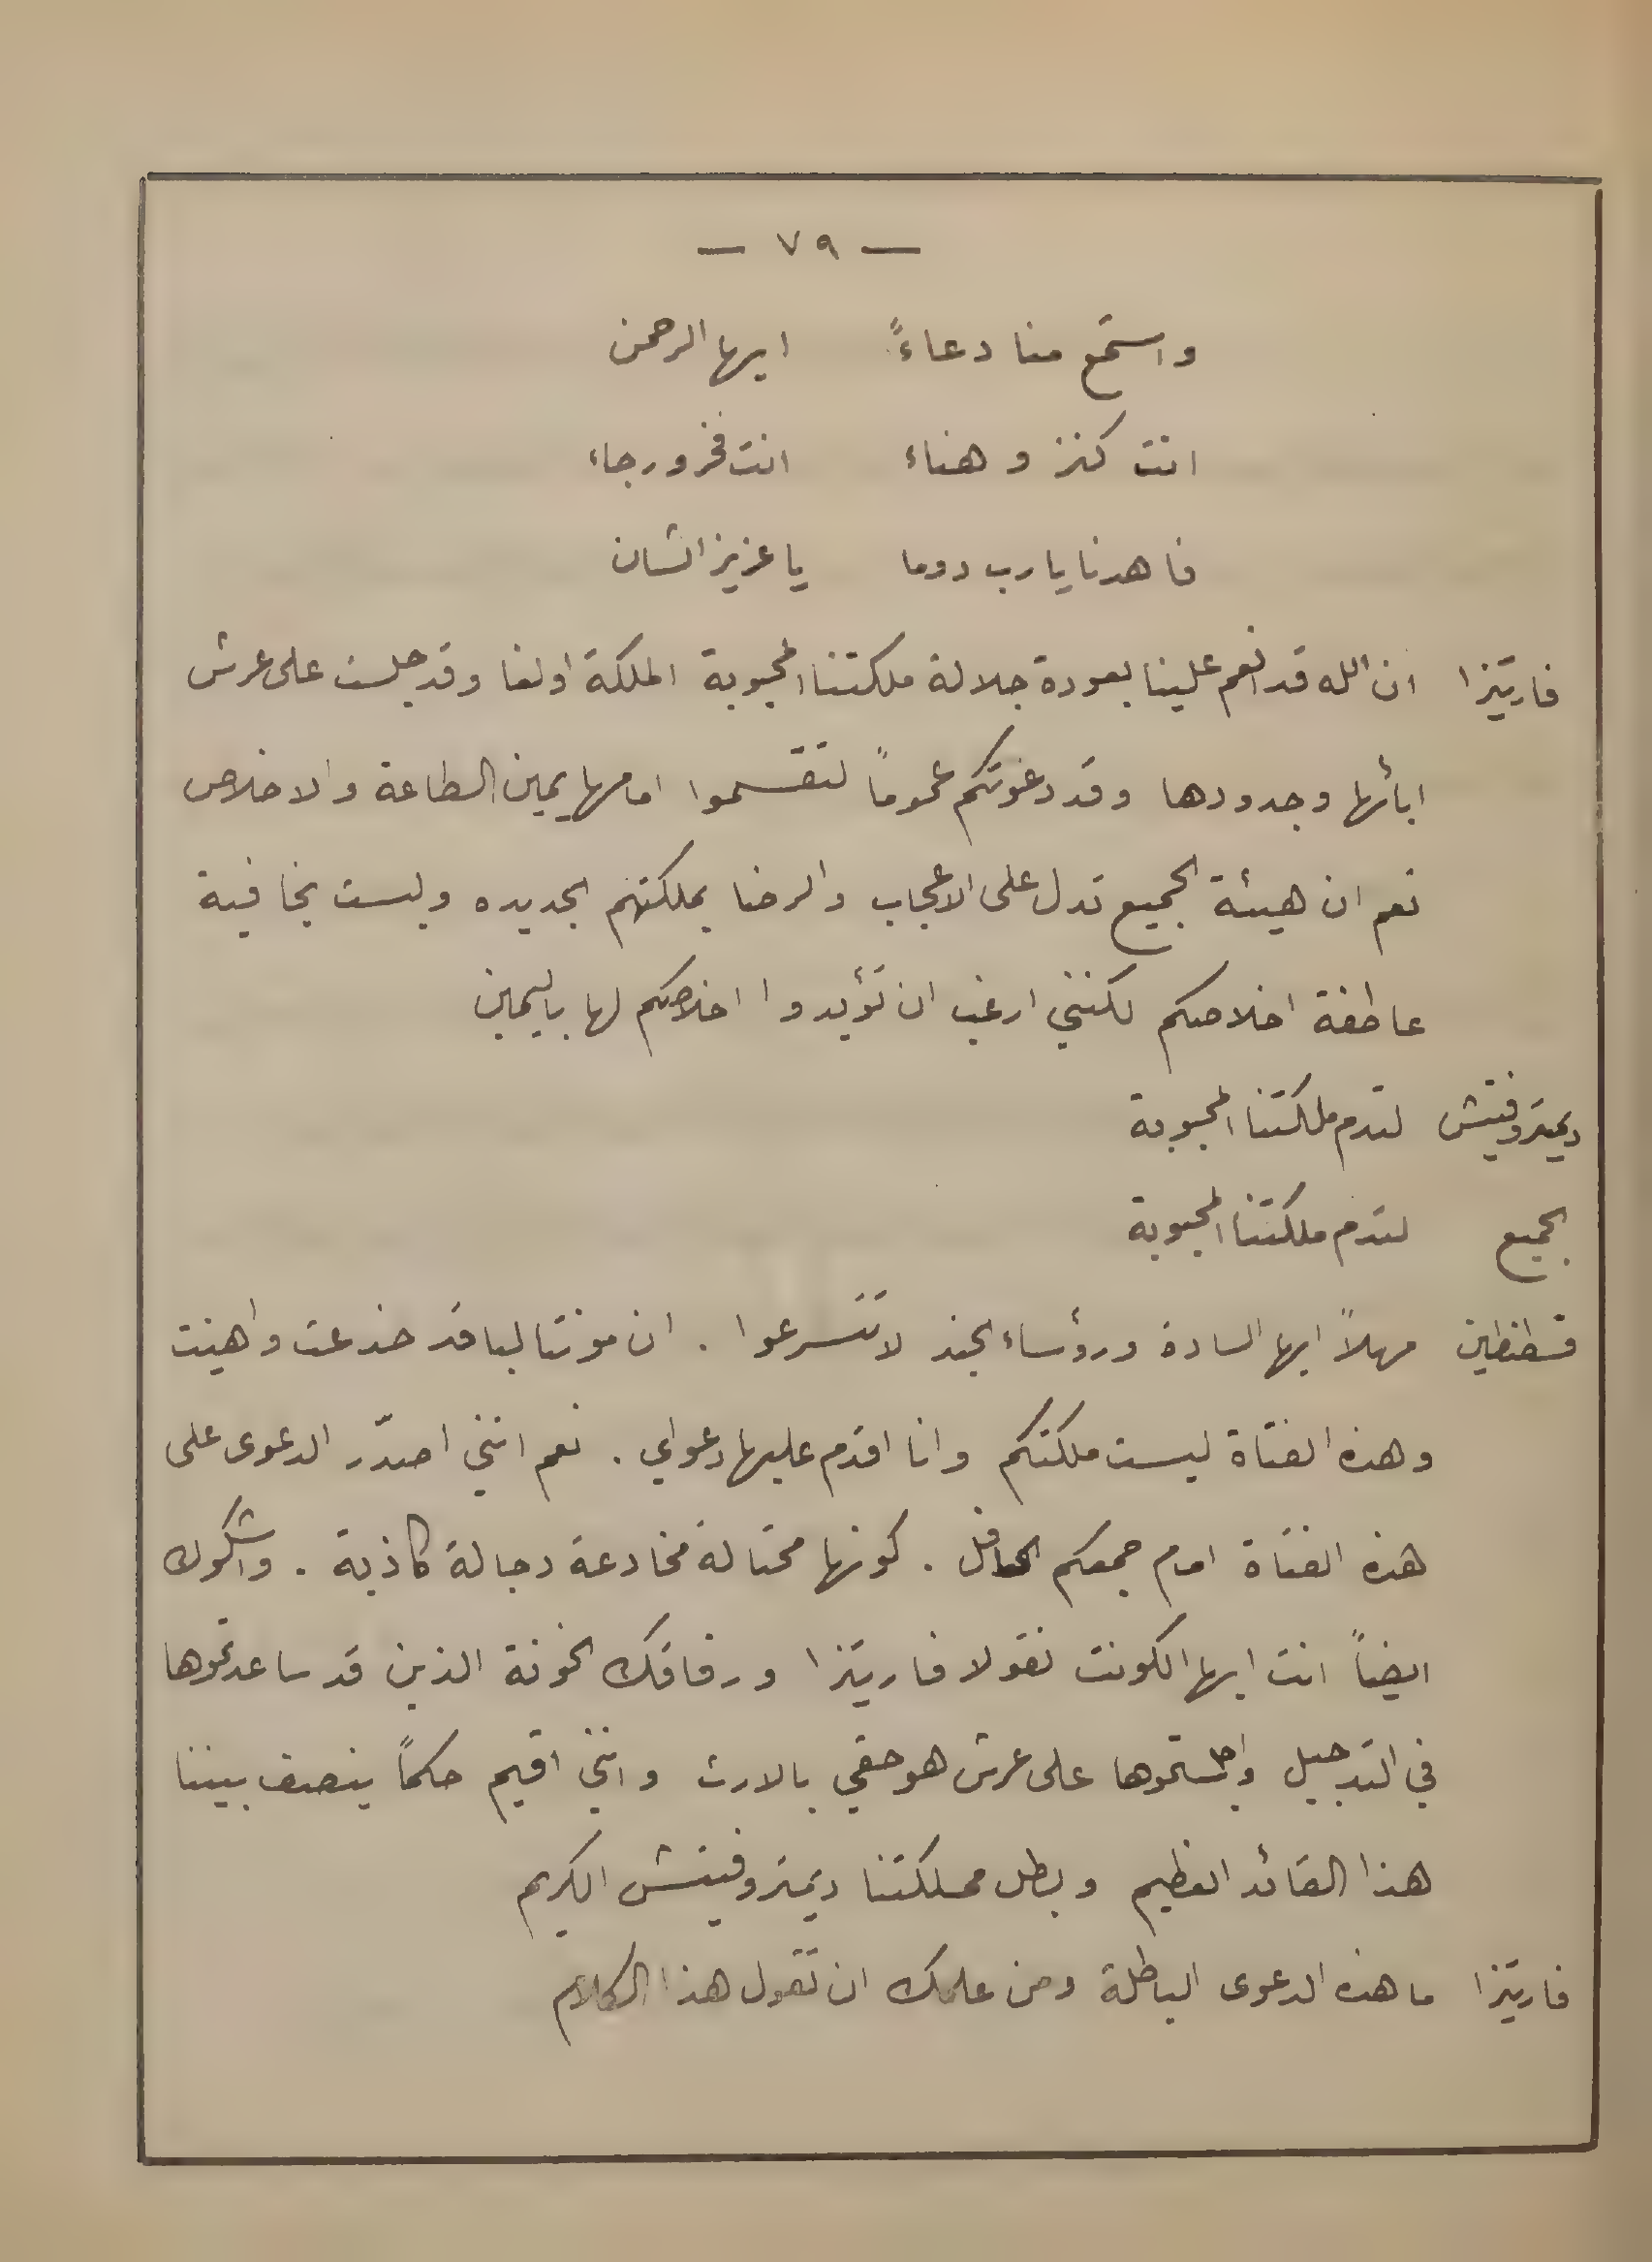 — ٧٩ —
واستمع منا دعاءً ايها الرحمن
انت كنز وهناء انت فخر ورجاء
فاهدنا يا رب دوما يا عزيز الشان
فاريتزا ان الله قد انعم علينا بعودة جلالة ملكتنا المحبوبة الملكة اولغا وقد جلست على عرش
ابأئها وجدودها وقد دعوتكم عموماً لتقسموا امامها يمين الطاعة والاخلاص
نعم ان هيئة الجميع تدل على الاعجاب والرضا بملكتهم الجديده وليست بخافية
عاطفة اخلاصكم لكنني ارغب ان تؤيدوا اخلاصكم لها باليمين
ديمتروفيتش لتدم ملكتنا المحبوبة
الجميع لتدم ملكتنا المحبوبة
قسطنطين مهلاً ايها السادة ورؤساء الجند لا تتسرعوا . ان مونتالبا قد خدعت واهينت
وهذه الفتاة ليست ملكتكم وانا اقدم عليها دعواي . نعم انني اصدّر الدعوى على
هذه الفتاة امام جمعكم الحافل . كونها محتالة مخادعة دجالة كاذبة . واشكوك
ايضاً انت ايها الكونت نقولا فاريتزا ورفاقك الخونة الذين قد ساعدتموها
في التدجيل واجلستموها على عرش هو حقي بالارث وانني اقيم حكماً ينصف بيننا
هذا القائد العظيم وبطل مملكتنا ديمتروفيتش الكريم
فاريتزا ما هذه الدعوى الباطلة ومن علمك ان تقول هذا الكلام